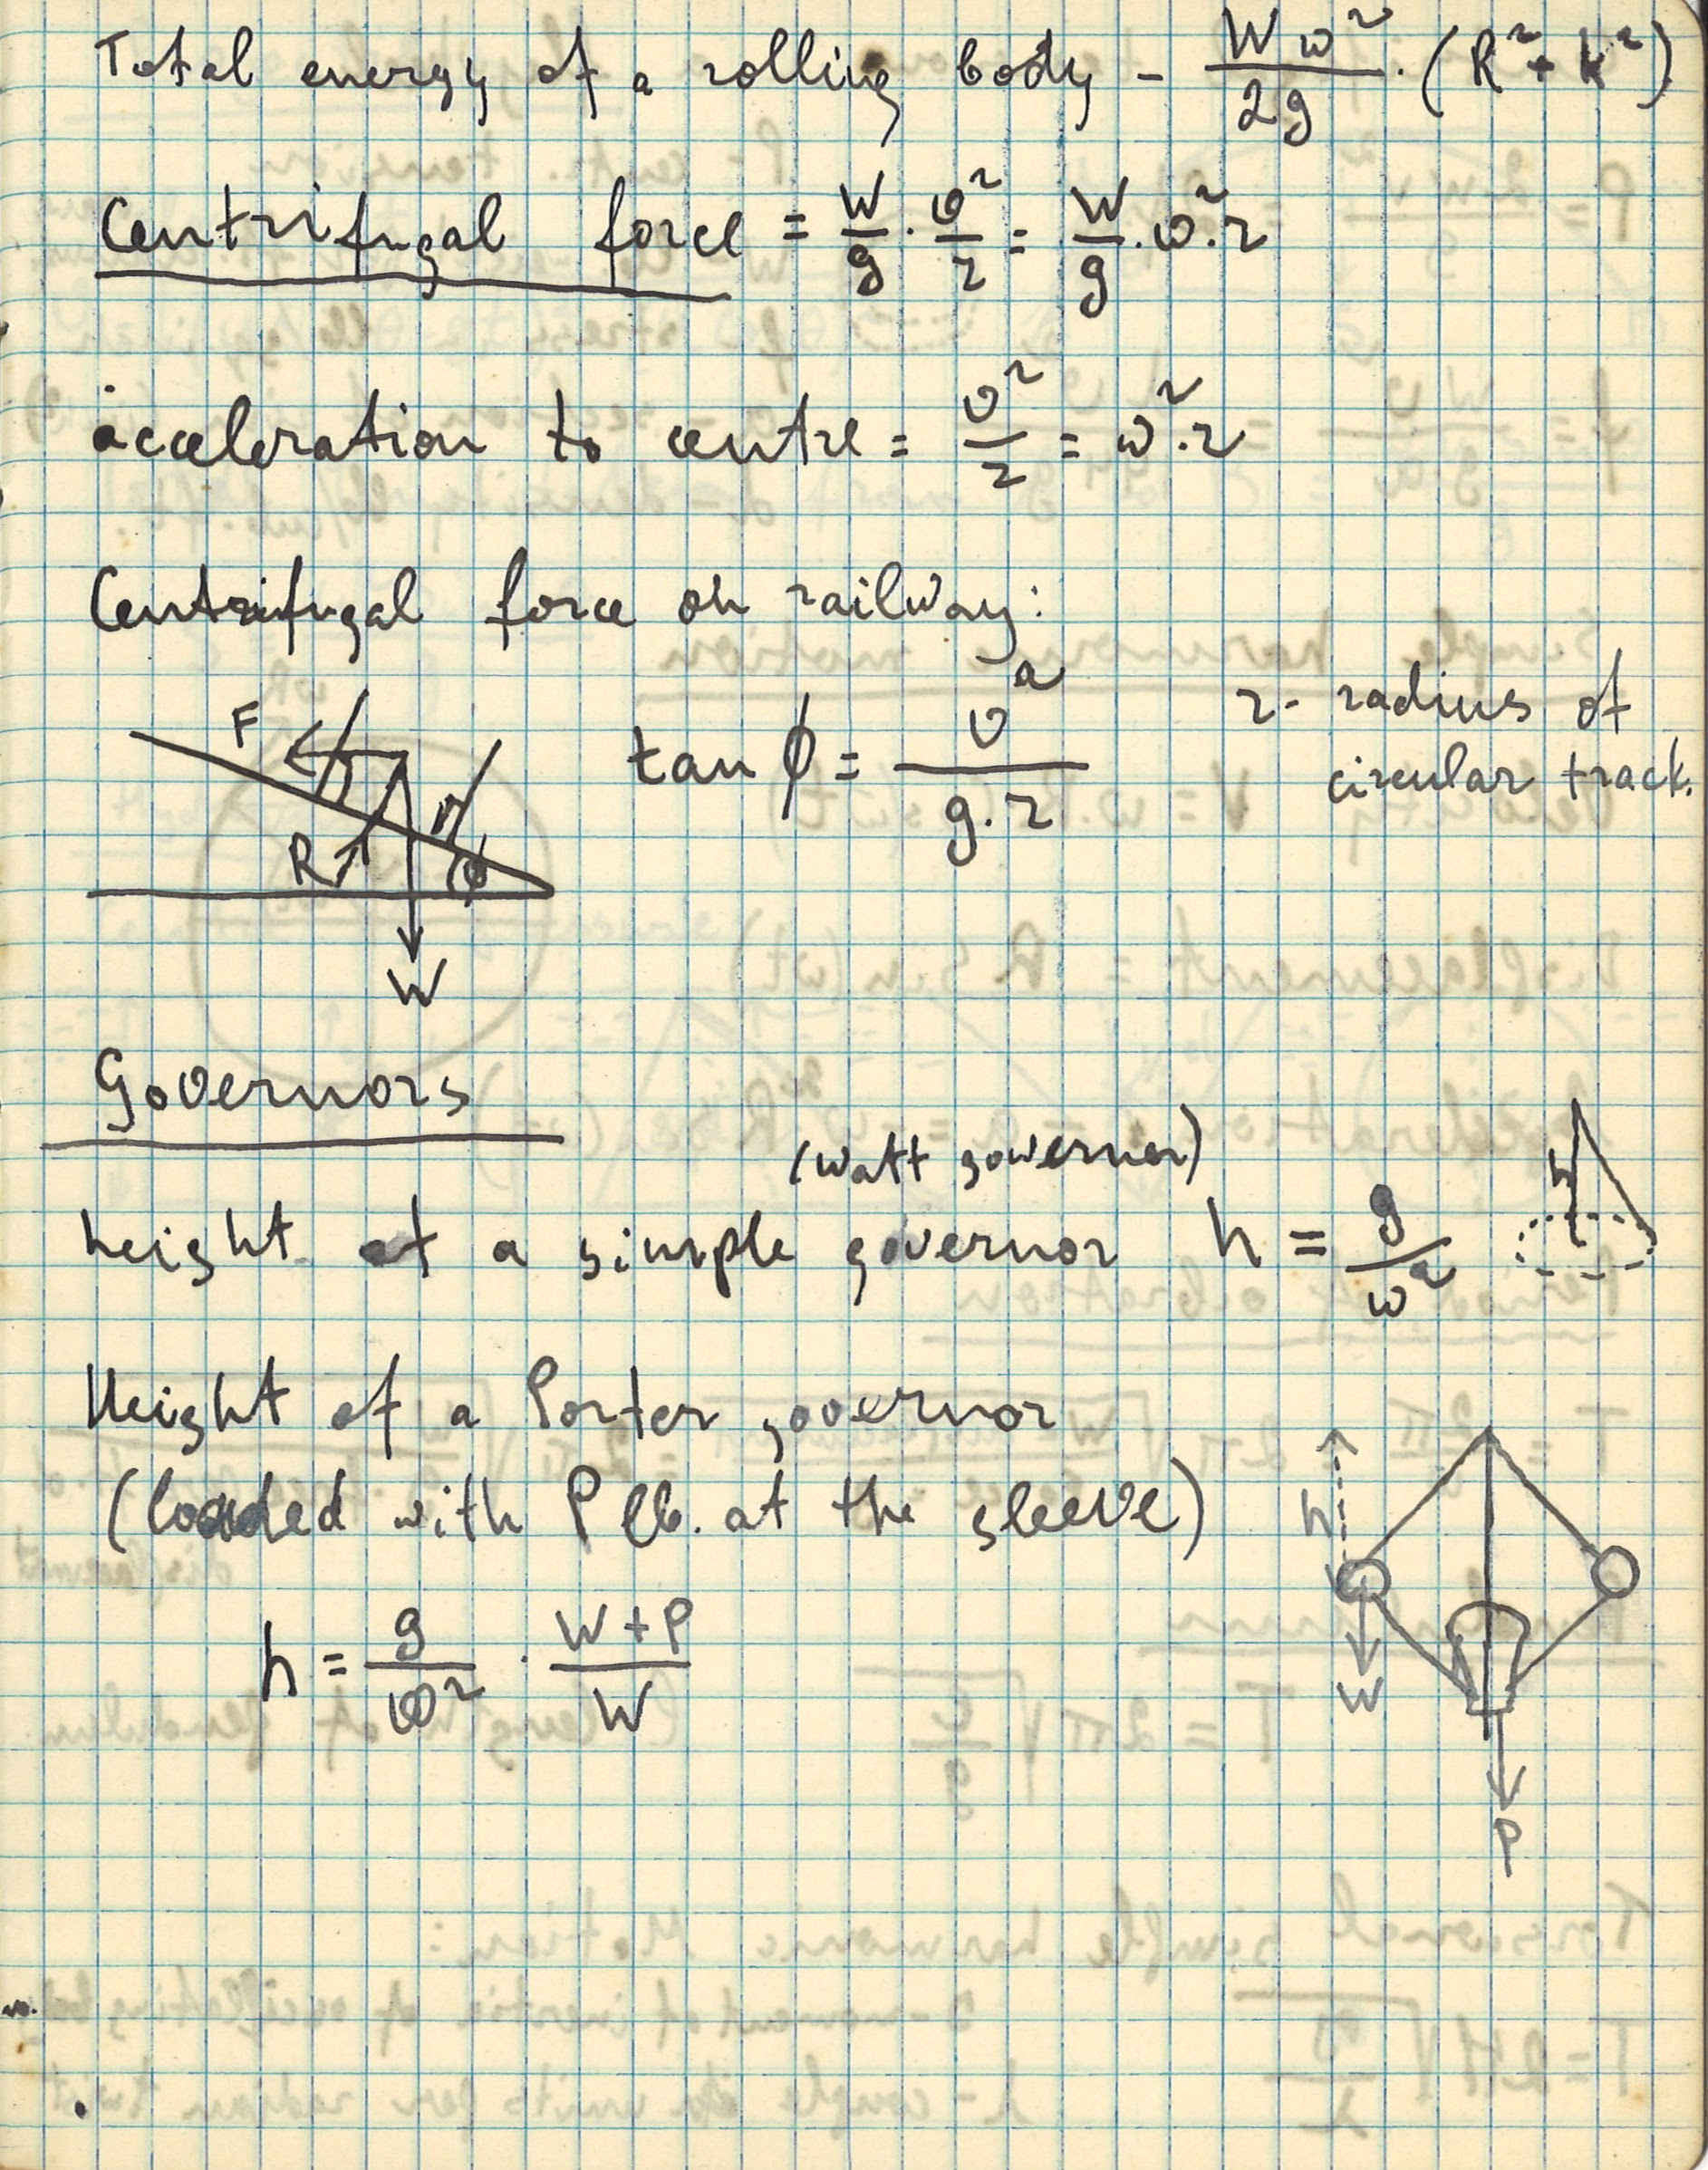 Total energy of a rolling body - Wω²/2g · (R² + k²)
Centrifugal force = W/g · v²/r = W/g · ω² · r
acceleration to centre = v²/r = ω² · r
Centrifugal force on railway:
F
R
φ
W
tan φ = v²/g·r
r - radius of
circular track.
Governors
(Watt governor)
height of a simple governor h = g/ω²
h
r
Height of a Porter governor
(loaded with P lb. at the sleeve)
h = g/ω² · W+P/W
h
W
P